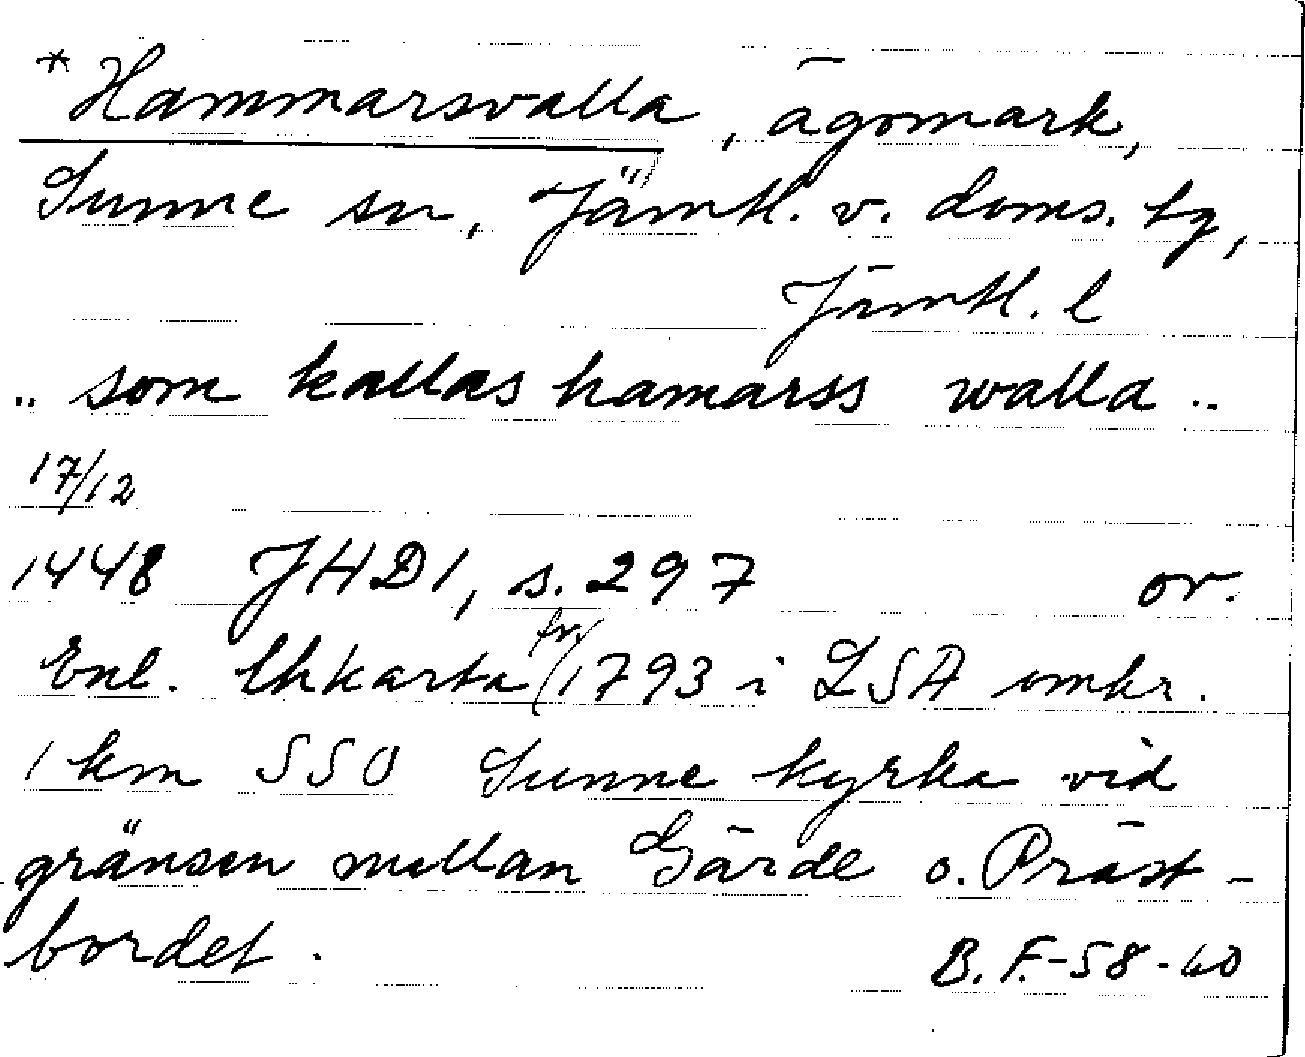 *Hammarsvalla, ägomark,
Sunne sn, Jämtl. v. doms. tg,
Jämtl. l
.. som kallas hamarss walla ..
17/12
1448 JHD1, s. 297 or.
Enl. lhkarta fr 1793 i LSA omkr.
1 km SSO Sunne kyrka vid
gränsen mellan Gärde o. Präst-
bordet.
B.F.-58-60